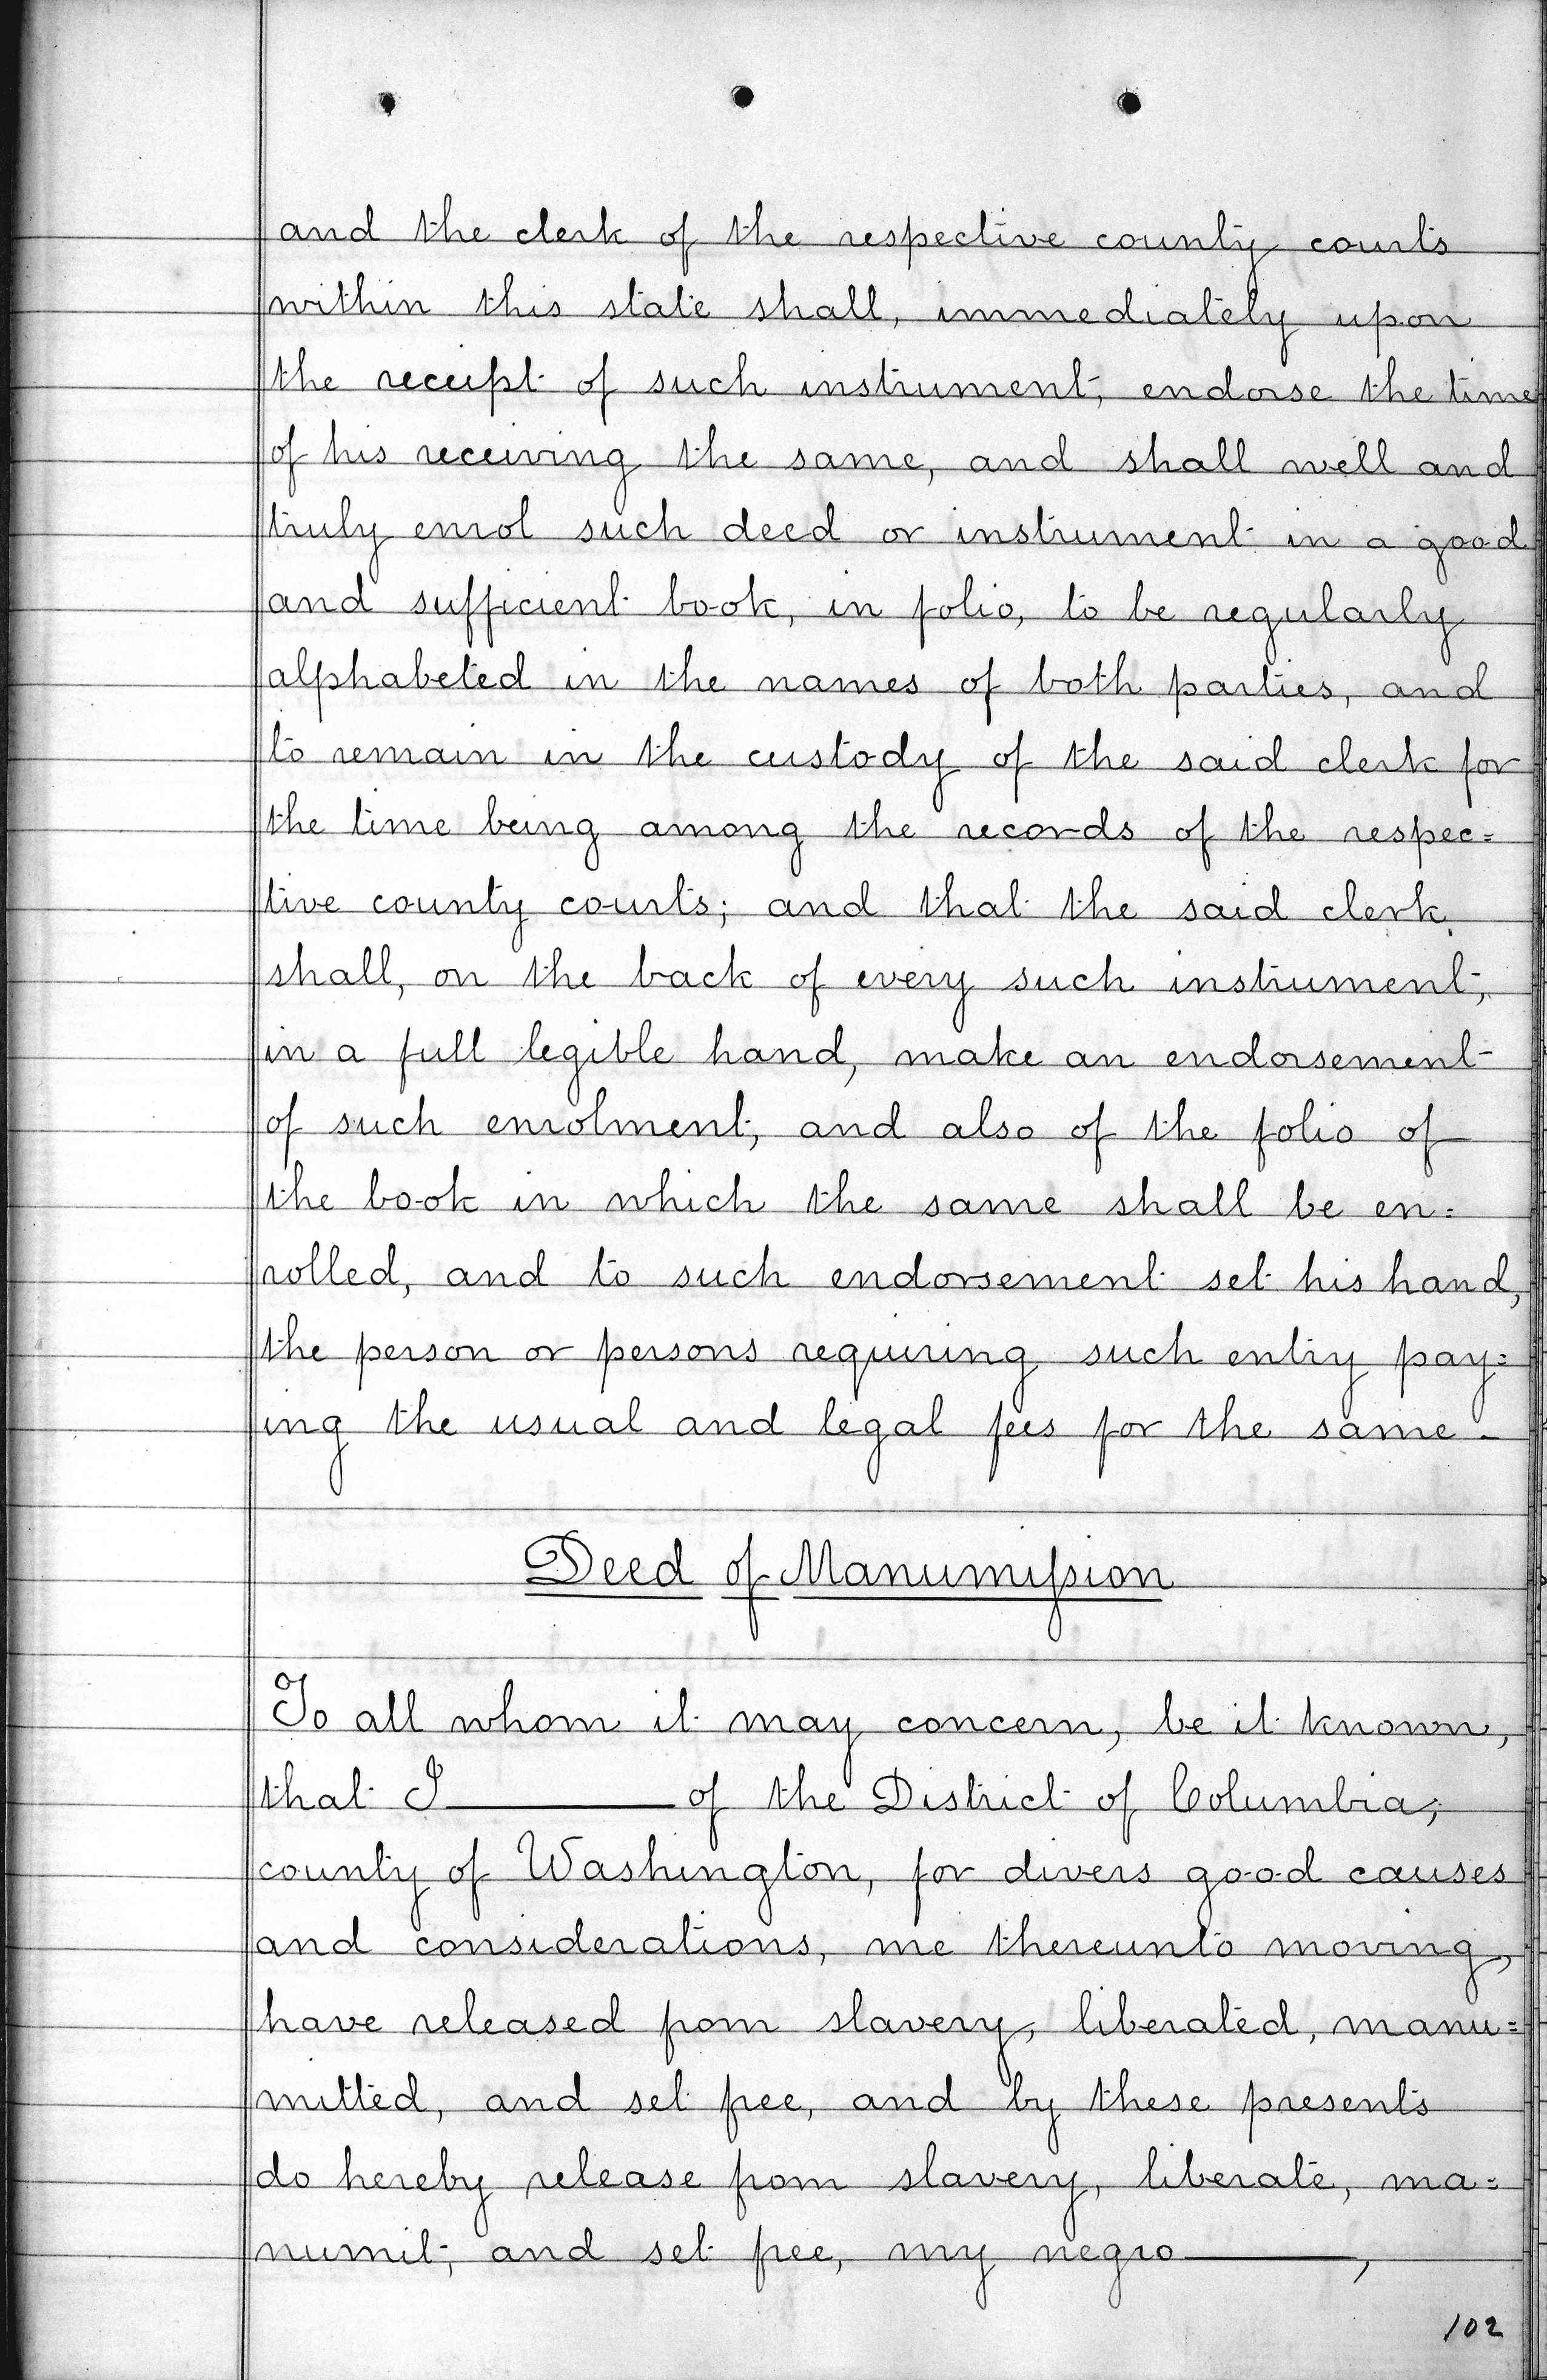 and the clerk of the respective county courts
within this state shall, immediately upon
the receipt of such instrument, endorse the time
of his receiving the same, and shall well and
truly enrol such deed or instrument in a good
and sufficient book, in folio, to be regularly
alphabeted in the names of both parties, and
to remain in the custody of the said clerk for
the time being among the records of the respec=
tive county courts; and that the said clerk
shall, on the back of every such instrument,
in a full legible hand, make an endorsement
of such enrolment, and also of the folio of
the book in which the same shall be en=
rolled, and to such endorsement set his hand,
the person or persons requiring such entry pay=
ing the usual and legal fees for the same.
Deed of Manumiſsion
To all whom it may concern, be it known,
that I ______ of the District of Columbia,
county of Washington, for divers good causes
and considerations, me thereunto moving,
have released from slavery, liberated, manu=
mitted, and set free, and by these presents
do hereby release from slavery, liberate, ma=
numit, and set free, my negro ______,
102